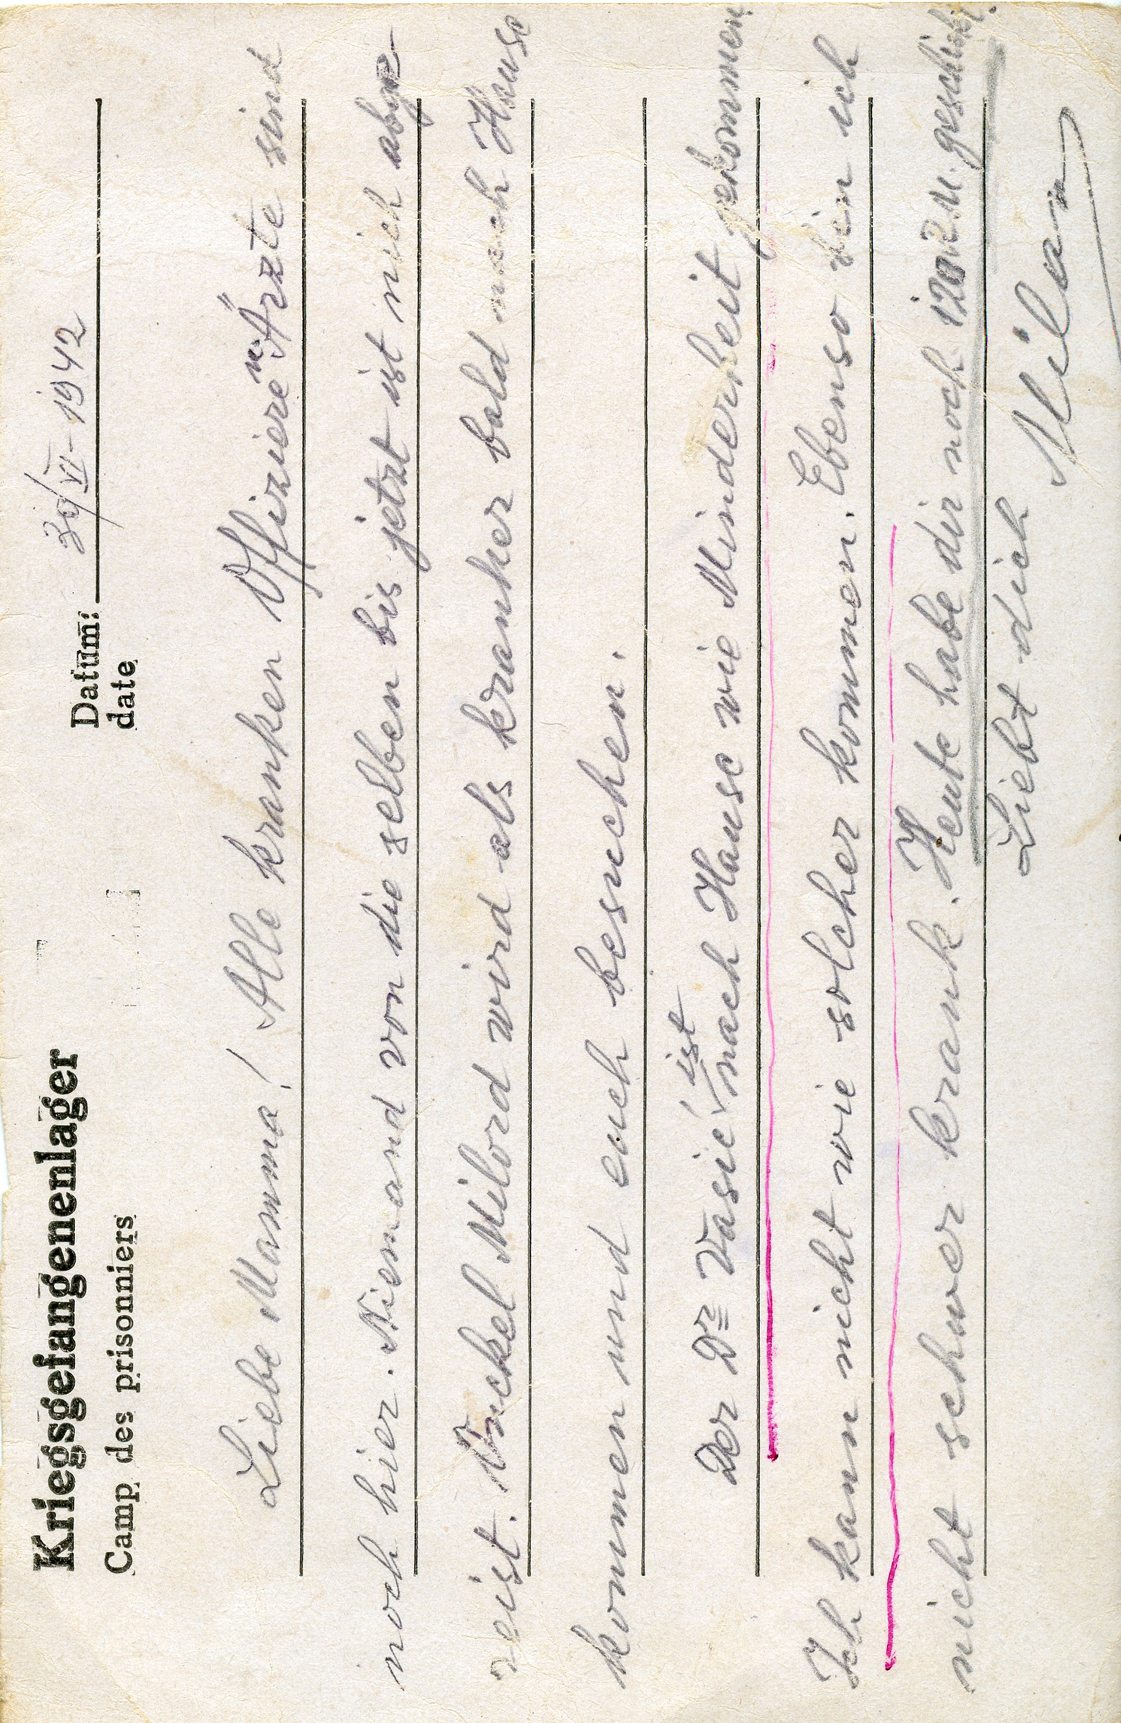 Kriegsgefangenenlager
Camp des prisonniers
Datum: 30/VI-1942
date
Liebe Mamma! Alle kranken Offiziere u. Ärzte sind
noch hier. Niemand von die selben bis jetzt ist nich abge
reist. Onckel Milord wird als kranker bald nach Hause
kommen und euch besuchen.
Der Dr Vasić ist nach Hause wie Minderheit gekommen
Ich kann nicht wie solcher kommen. Ebenso bin ich
nicht schwer krank. Heute habe dir noch 120 R.M. geschickt.
Liebt dich Milan